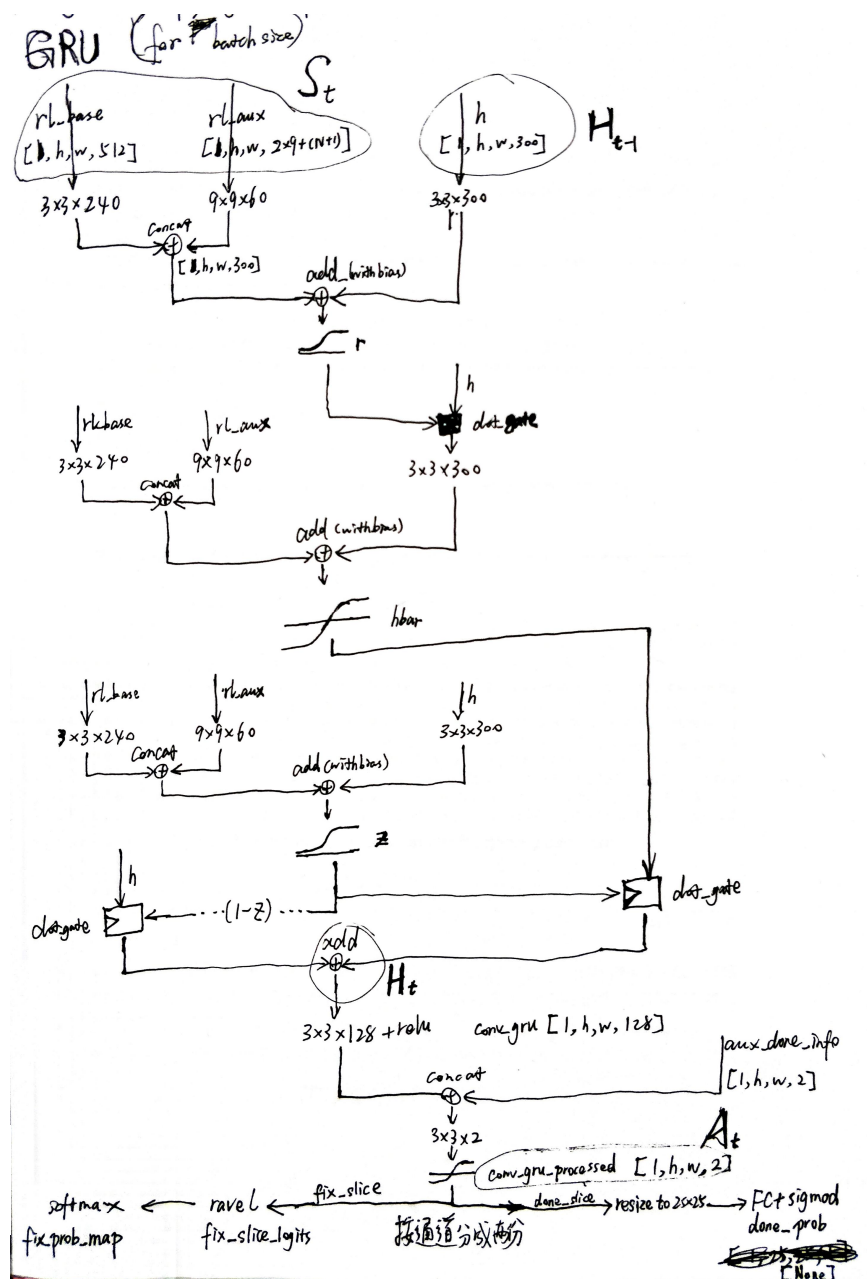 GRU (for batch size)
S_t
rl_base
rl_aux
h
H_{t-1}
[1, h, w, 512]
[1, h, w, 2×9+(N+1)]
[1, h, w, 300]
3×3×240
9×9×60
3×3×300
concat
[1, h, w, 300]
add_(with bias)
r
h
rl_base
rl_aux
dot_gate
3×3×240
9×9×60
3×3×300
concat
add (with bias)
hbar
rl_base
rl_aux
h
3×3×240
9×9×60
3×3×300
concat
add (with bias)
z
h
dot_gate
(1-z)
dot_gate
add
H_t
3×3×128 + relu
conv_gru [1, h, w, 128]
aux_done_info
[1, h, w, 2]
concat
3×3×2
A_t
conv_gru_processed [1, h, w, 2]
softmax
ravel
fix_slice
done_slice
resize to 25×25
FC+sigmod
fix_prob_map
fix_slice_logits
按通道分成两份
done_prob
[None]